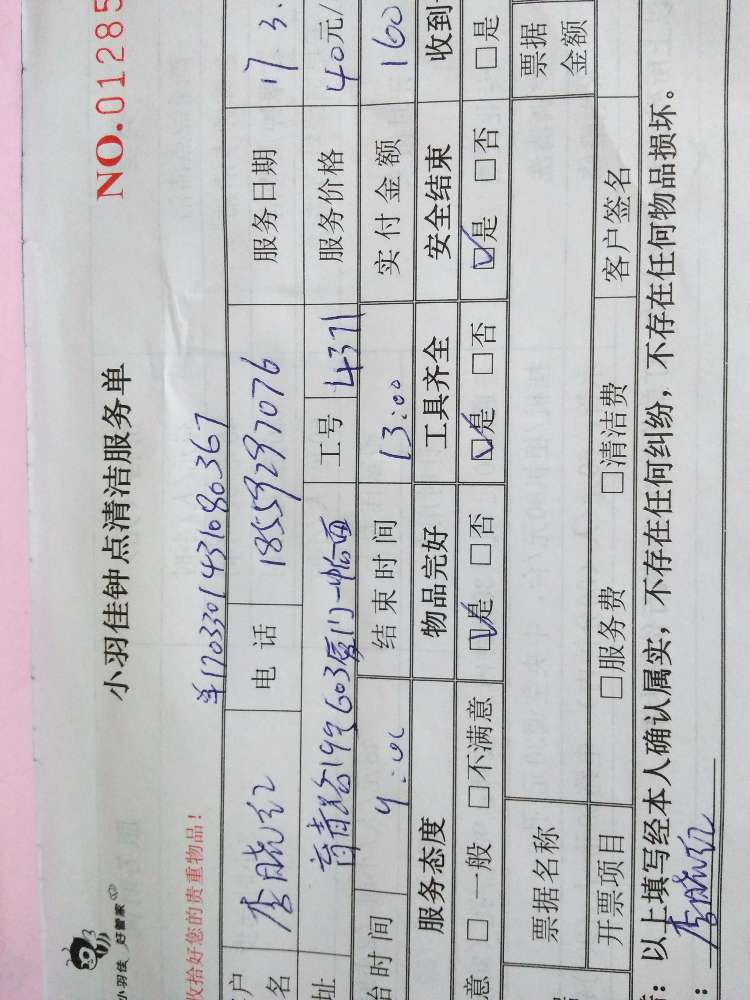 小羽佳 好管家
小羽佳钟点清洁服务单
NO.01285
收拾好您的贵重物品!
单1703301431080367
户名 李晓红 电话 18559297076 服务日期 17.3.
址 育青路19号603厦门一中 工号 4371 服务价格 40元/
始时间 9:00 结束时间 13:00 实付金额 160
服务态度 物品完好 工具齐全 安全结束 收到
意 □一般 □不满意 ☑是 □否 ☑是 □否 ☑是 □否 □是
票据名称 票据金额
开票项目 □服务费 □清洁费 客户签名
:以上填写经本人确认属实,不存在任何纠纷,不存在任何物品损坏。
: 李晓红